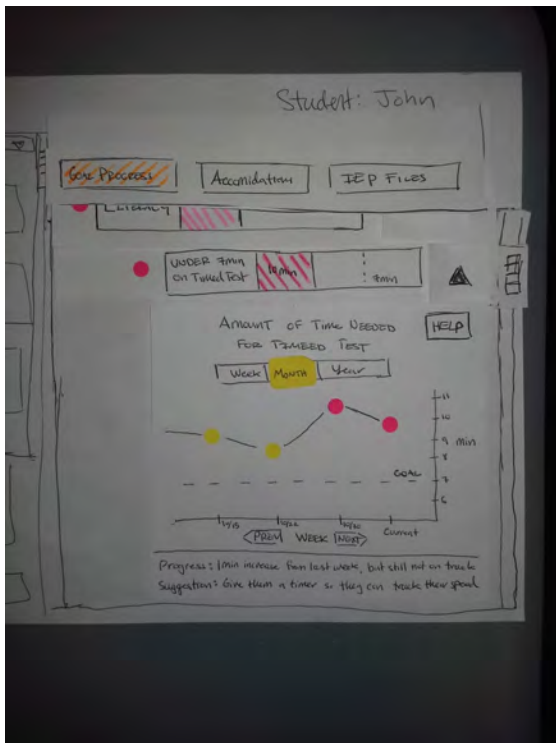 Student: John
GOAL PROGRESS
Accomidations
IEP FILES
LITERACY
UNDER 7min
on Timed Test
10min
7min
AMOUNT OF TIME NEEDED
FOR TIMEED TEST
HELP
Week
MONTH
Year
11
10
9 min
8
GOAL
7
6
Current
PREV
WEEK
NEXT
Progress: 1min increase from last week, but still not on track
Suggestion: Give them a timer so they can track their speed